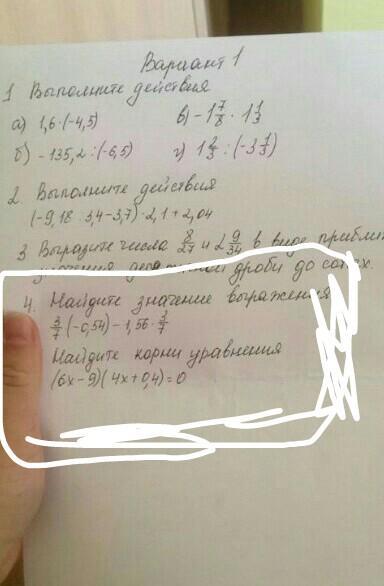 Вариант 1
1 Выполните действия
а) 1,6·(-4,5) в) -1 7/8 · 1 1/3
б) -135,2:(-6,5) г) 1 2/3 : (-3 1/3)
2. Выполните действия
(-9,18 : 3,4-3,7)·2,1+2,04
3 Выразите числа 8/27 и 2 9/34 в виде
дробь до сотых.
4. Найдите значение выражения
3/7 (-0,54)-1,56·3/7
Найдите корни уравнения
(6х-9)(4х+0,4)=0